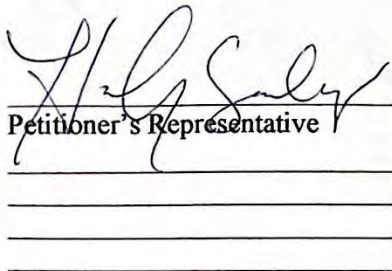 Petitioner's Representative